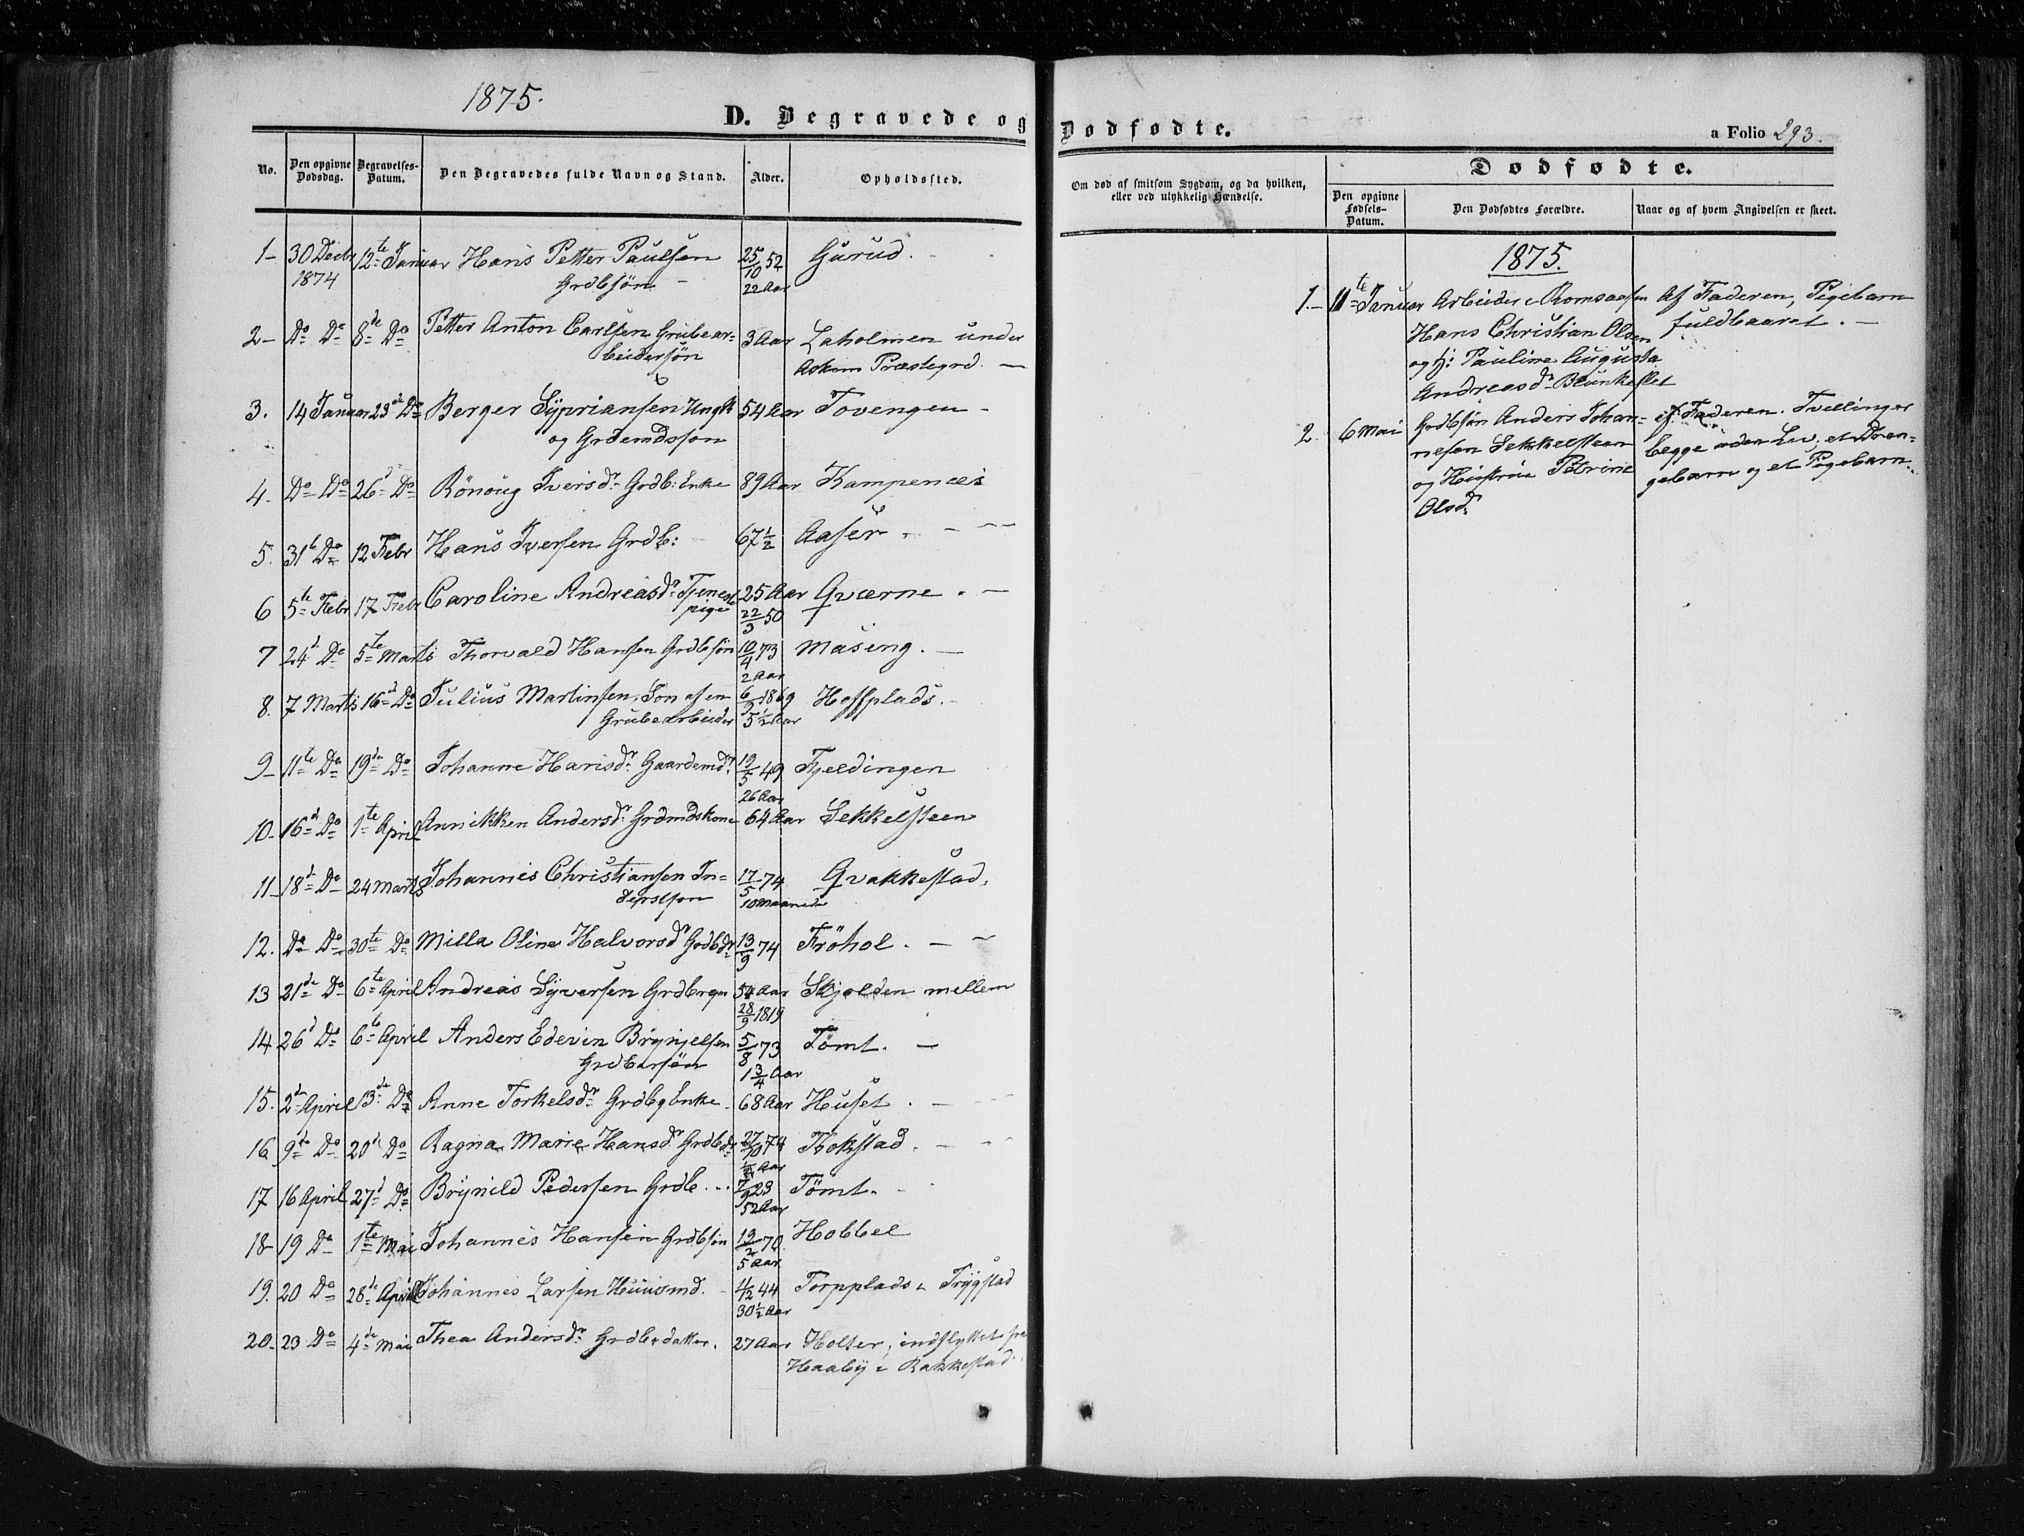 1875.
D. Begravede og Dødfødte.
a Folio 293.
No. Den opgivne Dødsdag. Begravelses-Datum. Den Begravedes fulde Navn og Stand. Alder. Opholdssted.
Om død af smitsom Sygdom, og da hvilken, eller ved ulykkelig Hændelse.
Dødfødte.
Den opgivne Fødsels-Datum. Den Dødfødtes Forældre. Naar og af hvem Angivelsen er skeet.
1 - 30 Decbr 12te Januar Hans Petter Paulsen 25/10 52 Gurud.
1874 Grdbsøn - 22 Aar
2 - Do Do 8de Do Petter Anton Carlsen Grubear- 3 Aar Laholmen under
beidersøn Askim Præstegrd. -
3. 14 Januar 23de Do Berger Sypriansen Ungk 54 Aar Tovengen -
og Grdmdssøn
4. Do Do 26d Do Rønoug Iversdr Grdb: Enke 89 Aar Kampenæs
5. 31te Do 12 Febr Hans Iversen Grdb: 67 1/2 Aaser. -
6 5te Febr 17 Febr Caroline Andreasdr Tjeneste 25 Aar Qværne. -
pige 22/3 50
7 24d Do 5te Marts Thorvald Hansen Grdbsøn 10/4 73 Masing. -
2 Aar
8. 7 Marts 16d Do Julius Martinsen, Søn af en 6/9 1869 Hoffplads. -
Grubearbeider 5 1/2 Aar
9 - 11te Do 19de Do Johanne Hansdr Gaardemdr 19/5 49 Fjeldingen
26 Aar
10 - 16d Do 1te April Annikken Andersdr Grdmdskone 64 Aar Sekkelsteen
11 - 18d Do 24 Marts Johannes Christiansen In- 17/5 74 Qvakkestad.
derstsøn 10 Maaneder
12. Do Do 30te Do Milla Oline Halvorsdr Grdbdr 13/9 74 Frøhol. -
13 21de Do 6te April Andreas Syversen Grdbruger 54 Aar Skjolden mellem
28/9 1819
14 26d Do 6te April Anders Edevin Brynjelsen 5/8 73 Tømt. -
Grdbersøn 1 3/4 Aar
15. 2de April 13de Do Anne Torkelsdr Grdbg Enke 68 Aar Huset. -
16 9de Do 20d Do Ragna Marie Hansdr Grdbdr 27/10 74 Hokstad. -
1/2 Aar
17 16 April 27d Do Brynild Pedersen Grdb. 7/9 23 Tømt.
52 Aar
18 - 19 Do 1te Mai Johannes Hansen Grdbsøn 19/2 70 Hobbel
5 Aar
19. 20 Do 28de April Johannes Larsen Huusmd. 4/12 44 Torpplads i Trygstad
30 1/2 Aar
20 - 23 Do 4de Mai Thea Andersdr Grdbrdatter. 27 Aar Holter, indflyttet fra
Haaby i Rakkestad.
1875.
1. - 11te Januar Arbeider i Romsaasen Af Faderen, Pigebarn
Hans Christian Olsen fuldbaaret. -
og H: Pauline Augusta
Andreasdr Blunkeslet
2. 6 Mai Grdbsøn Anders Johan- af Faderen. Tvillinger
nesen Sekkelsteen begge uden Liv, et Dren-
og Hustrue Petrine gebarn og et Pigebarn.
Olsdr